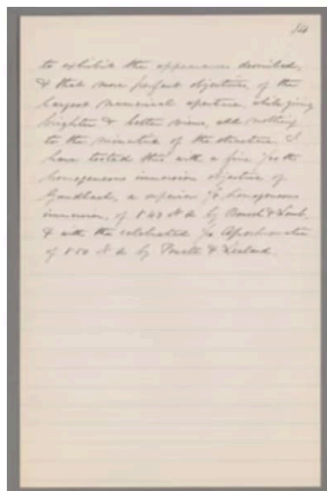 14
to exhibit the appearances described,
& that more perfect objectives of the
largest numerical aperture, while giving
brighter & better views, add nothing
to the minutia of the structure. I
have tested this with a fine
homogeneous immersion objective of
Gundlach, a superior homogeneous
immersion, of 1.43 N A by Bausch & Lomb,
& with the celebrated Apochromatic
of 1.50 N A by Powell & Lealand.